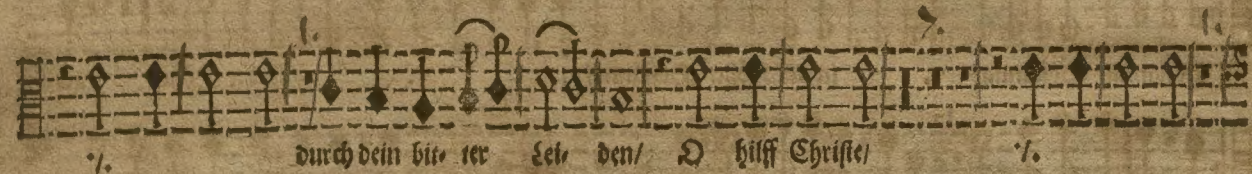 1. 7. 1.
·/. durch dein bit- ter Lei- den/ O hilff Christe/ ·/.